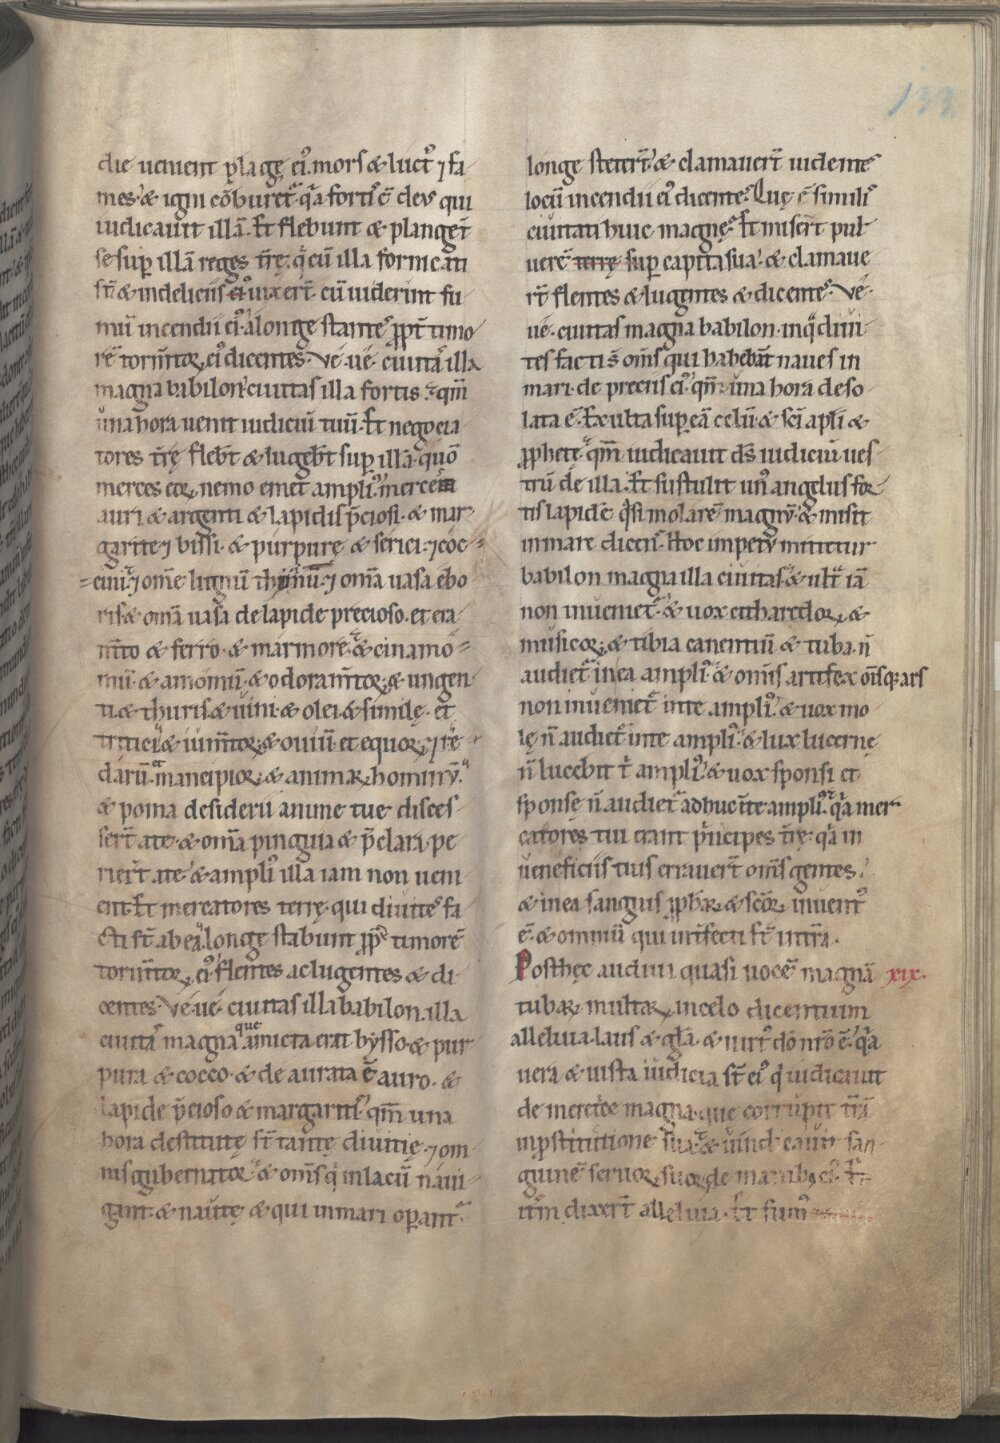 133
die uenient plagę ei᷒ mors & luct᷒ ⁊ fa
mes· & igni cōburet᷑ q̄a fortis ē deus qui
iudicauit illā. Et flebunt & plangēt
se sup illā reges t̄rę. q̄ cū illa fornicati
st̄ & in deliciis uixert̄ cū uiderint fu
mū incendii ei᷒ a longe stantes ꝓpt̄ timo
rē torm̄toꝝ ei᷒ dicentes. Vę uę ciuitas illa
magna babilon ciuitas illa fortis qm̄
una hora uenit iudiciū tuū. Et negocia
tores t̄rę flebt̄ & lugebt̄ sup illā quō
merces eoꝝ nemo emet ampli᷒ mercē
auri & argenti & lapidis p̄ciosi· & mar
garite ⁊ bissi· & purpurę & serici· ⁊ coc
cini ⁊ om̄e lignū thyinū· ⁊ om̄a uasa ebo
ris & om̄a uasa de lapide precioso· et era
m̄to & ferro· & marmore & cinamo
mū· & amomū· & odoram̄toꝝ & ungen
ti & thuris & uini· & olei & similę· et
tritici & ium̄toꝝ & ouiū et equoꝝ ⁊ re
darū mancipioꝝ & animaꝝ hominū·
& poma desiderii anime tue disces
sert̄ a te· & om̄a pinguia & p̄clara pe
riert̄ a te· & ampli᷒ illa iam non ueni
ent. Et mercatores terrę· qui diuites fa
cti st̄ ab ea longe stabunt ꝓpt̄ timorē
torm̄toꝝ ei᷒ flentes ac lugentes & di
centes. Vę uę ciuitas illa babilon· illa
ciuitas magna que amicta erat bysso· & pur
pura & cocco· & deaurata ē auro· &
lapide p̄cioso & margaritis· qm̄ una
hora destitutę st̄ tantę diuitię· ⁊ om
nis gubernator & om̄s q̄ in lacū naui
gant· & nautę & qui in mari operant᷑
longe stetert̄ & clamauert̄ uidentes
locū incendii ei᷒ dicentes. Quę ē similis
ciuitati huic magnę. Et misert̄ pul
uerē terrę sup capita sua· & clamaue
rt̄ flentes & lugentes & dicentes. Vę·
uę· ciuitas magna babilon· in q̄ diui
tes facti s̄ om̄s qui habebāt naues in
mari· de preciis ei᷒ qm̄ una hora deso
lata ē. Exulta sup eā celū· & sc̄i apl̄i &
ꝓphetę qm̄ iudicauit ds̄ iudiciū ues
trū de illa. Et sustulit un᷒ angelus for
tis lapidē q̄si molarē magnū· & misit
in mare dicens. Hoc impetu mittetur
babilon magna illa ciuitas & ult̄ iā
non inueniet᷑ & uox citharedoꝝ &
musicoꝝ & tibia canentiū & tuba n̄
audiet᷑ in ea ampli᷒ & omīs artifex om̄sq; ars
non inueniet᷑ in te ampli᷒ & uox mo
lę n̄ audiet᷑ in te ampli᷒ & lux lucernę
n̄ lucebit t̄ ampli᷒ & uox sponsi et
sponse n̄ audiet᷑ adhuc ī te ampli᷒ q̄a mer
catores tui erant p̄ncipes t̄rę· q̄a in
ueneficiis tuis errauert̄ om̄s gentes·
& in ea sanguis ꝓphaꝝ & sc̄oꝝ inuent᷒
ē· & omniū qui int̄fecti st̄ in t̄ra.
Post hęc audiui quasi uocē magnā xix.
tubaꝝ multaꝝ in celo dicentium
alleluia· laus & gl̄a· & uirt᷒ dō nr̄o ē· q̄a
uera & iusta iudicia st̄ ei᷒ q̄ iudicauit
de meretrice magna· que corrupit t̄rā
in ꝓstitutione sua· & uindicauit san
guinē seruoꝝ suoꝝ de manib; ei᷒. Et
it̄m dixert̄ alleluia. Et fum᷒